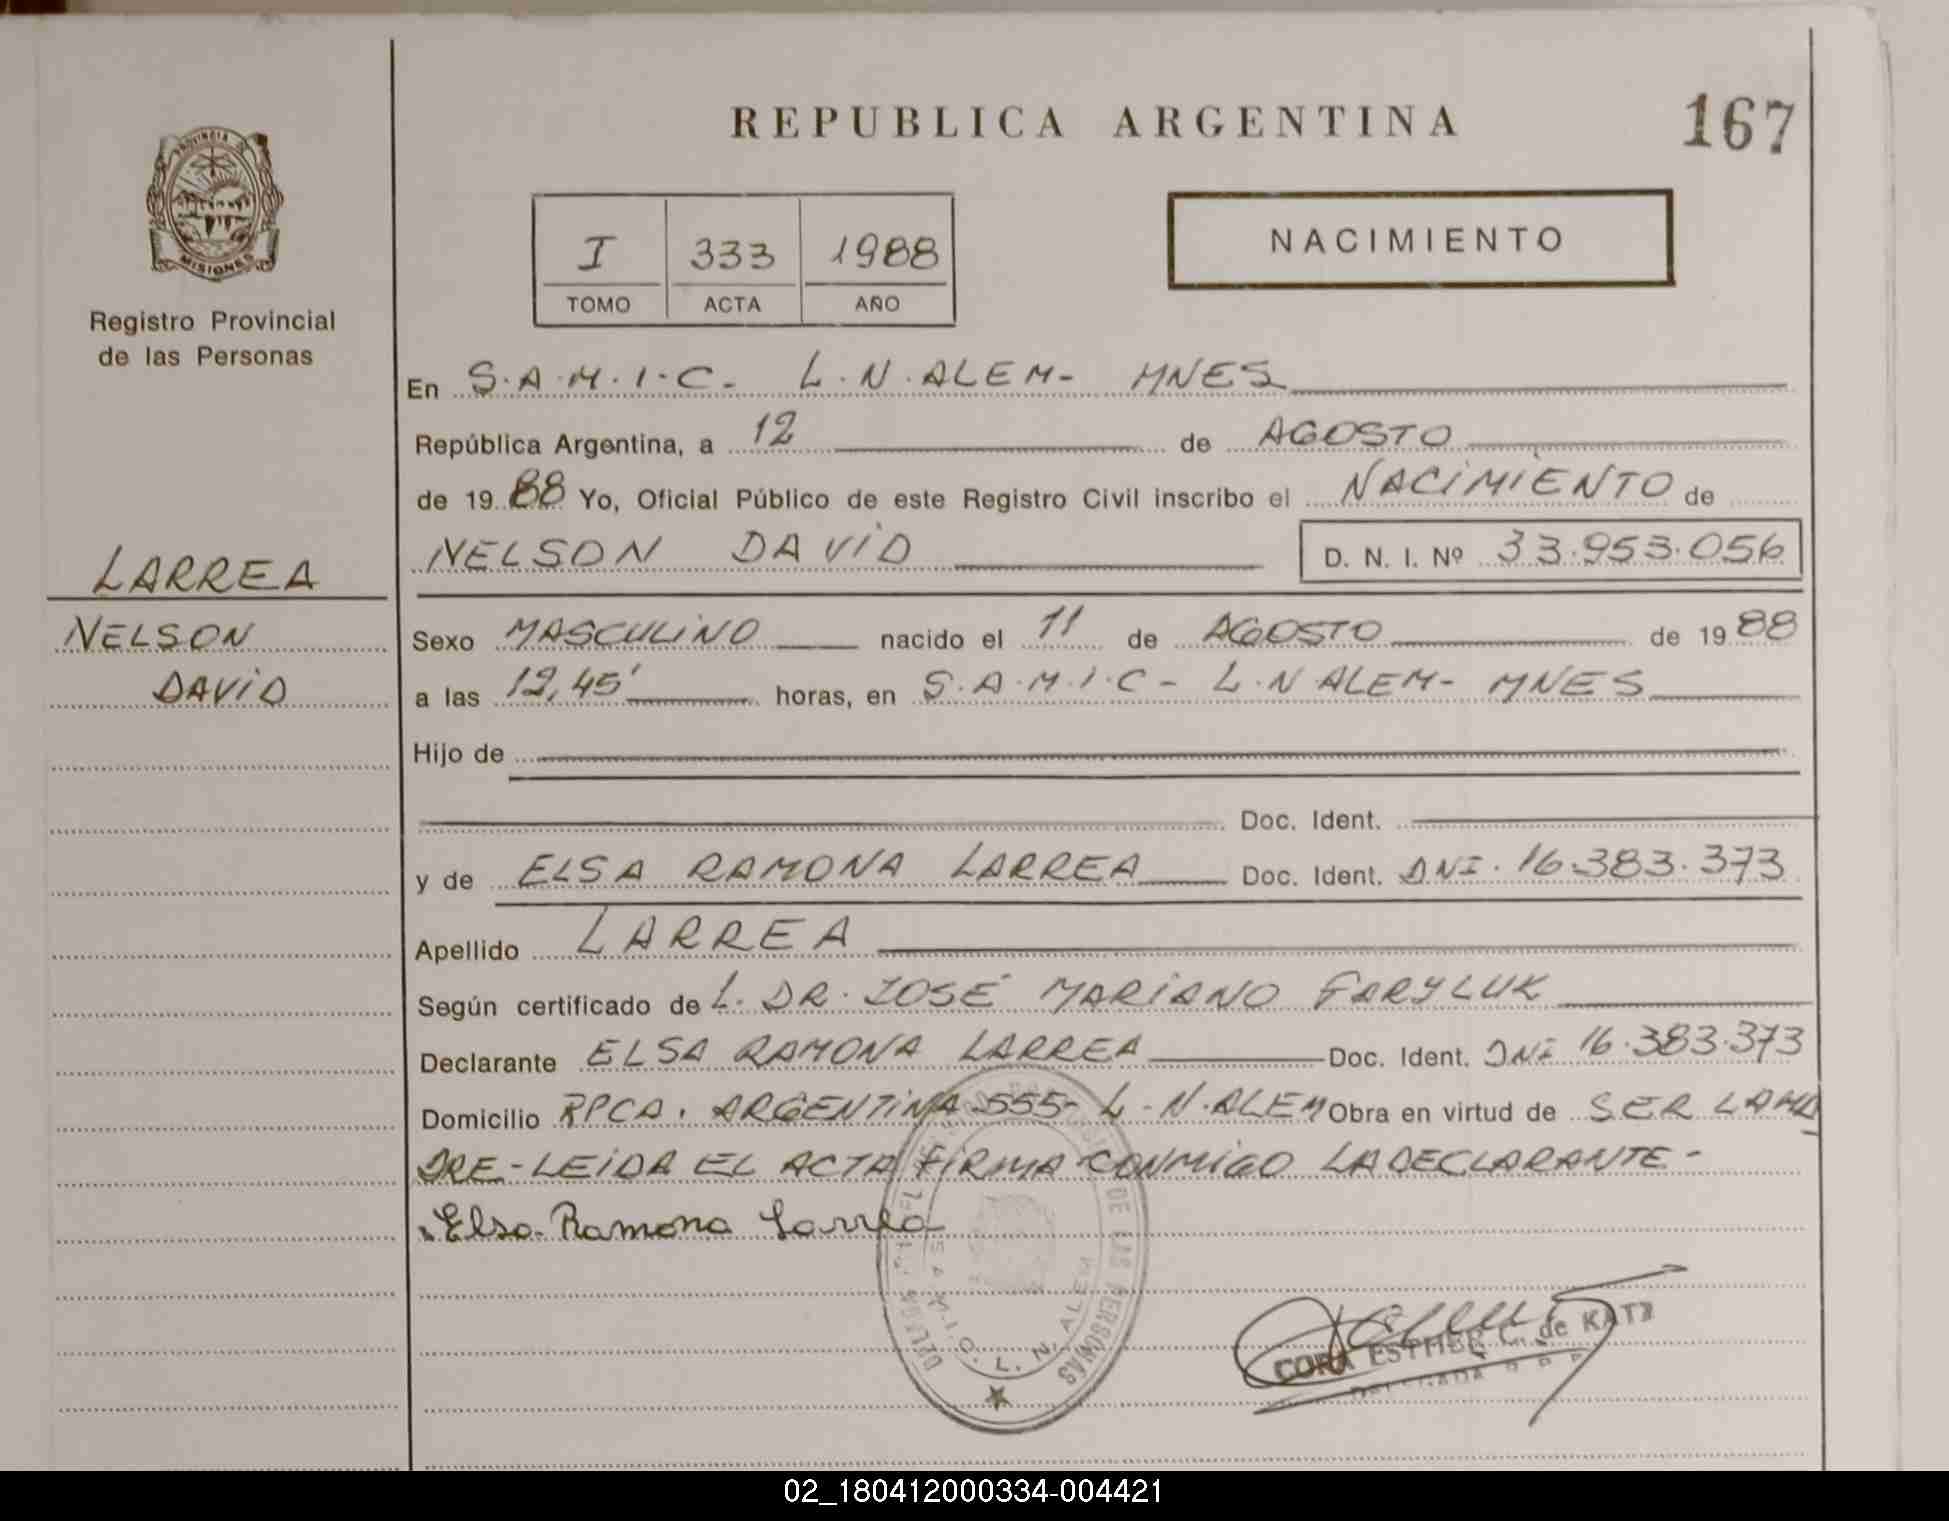 REPUBLICA ARGENTINA
167
PROVINCIA
MISIONES
Registro Provincial
de las Personas
I 333 1988
TOMO ACTA AÑO
NACIMIENTO
En S.A.M.I.C- L.N.ALEM- MNES
República Argentina, a 12 de AGOSTO
de 1988 Yo, Oficial Público de este Registro Civil inscribo el NACIMIENTO de
NELSON DAVID D. N. I. Nº 33.953.056
LARREA
NELSON
DAVID
Sexo MASCULINO nacido el 11 de AGOSTO de 1988
a las 12,45' horas, en S.A.M.I.C- L.N ALEM- MNES
Hijo de
Doc. Ident.
y de ELSA RAMONA LARREA Doc. Ident. DNI. 16.383.373
Apellido LARREA
Según certificado de L. DR. JOSÉ MARIANO FARYLUK
Declarante ELSA RAMONA LARREA Doc. Ident. DNI 16.383.373
Domicilio RPCA. ARGENTINA 555- L.N.ALEM Obra en virtud de SER LA MA
DRE-LEIDA EL ACTA FIRMA CONMIGO LA DECLARANTE-
Elsa Ramona Larrea
DE LAS PERSONAS
S.A.M.I.C. L. N. ALEM
CORA ESTHER C. de KATZ
DELEGADA
02_180412000334-004421